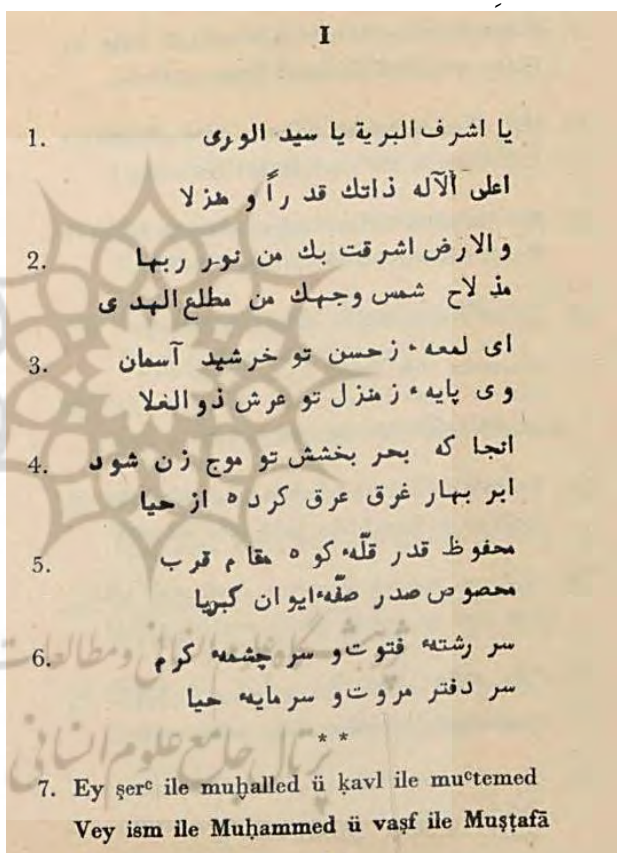 I
1. يا اشرف البرية يا سيد الورى
اعلى ٱلآله ذاتك قد راً و هنز لا
2. و الارض اشرقت بك من نور ربها
مذ لاح شمس وجهك من مطلع الهد ى
3. اى لمعهء ز حسن تو خرشيد آسمان
و ى پايهء ز منزل تو عرش ذو العلا
4. انجا كه بحر بخشش تو موج زن شود
ابر بهار غرق عرق كرد ه از حيا
5. محفوظ قدر قلّهء كو ه مقا م قرب
محصو ص صدر صفّهء ايو ان كبريا
6. سر رشتهء فتو ت و سر چشمهء كرم
سر دفتر مرو ت و سر مايهء حيا
* *
7. Ey şerᶜ ile muḫalled ü ḳavl ile muᶜtemed
Vey ism ile Muḥammed ü vaṣf ile Muṣṭafā
پژوهشگاه علوم انسانی و مطالعات
پرتال جامع علوم انسانی